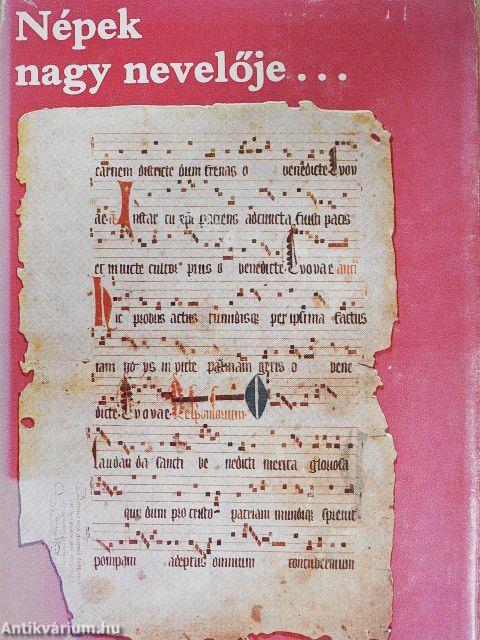 Népek
nagy nevelője...
carnem districte dum frenas o benedicte Evov
ae a Instar cu patiens adiuncta fuisti pacis
et inuicte cultor pius o benedicte Evovae
Hic probus actus tumidisque per ipsima factus
iam no palmam geris o bene
dicte Evovae Responsorium
Laudanda sancti benedicti merita gloriosa
qui dum pro cristo patriam mundique spreuit
pompam adeptus omnium contubernium
Antikvárium.hu